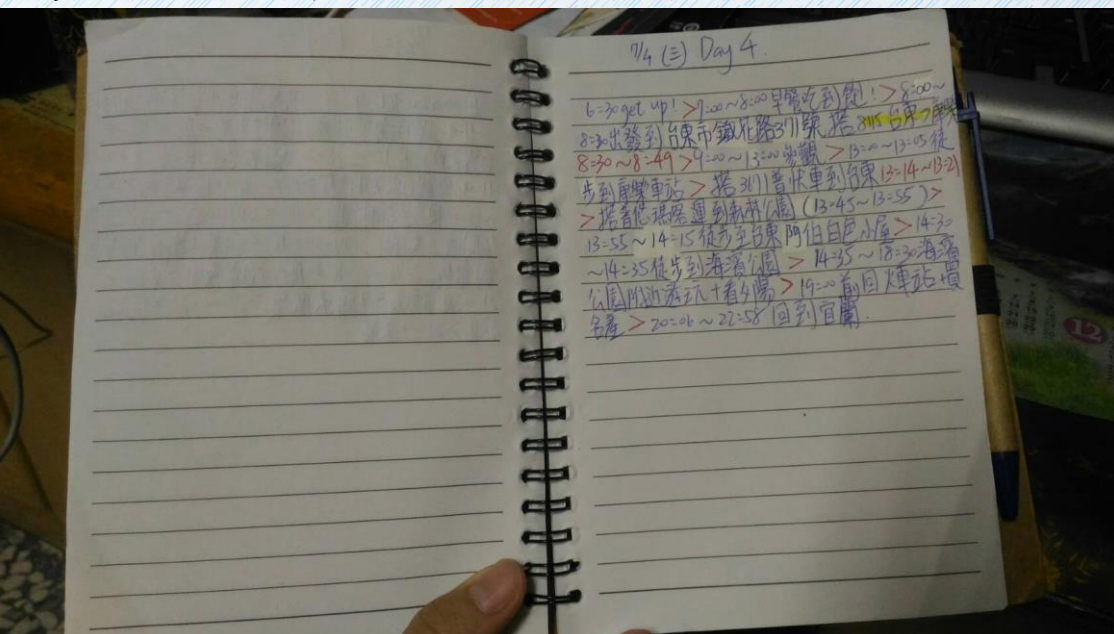 7/4 (三) Day 4.
6:30 get up! >7:00~8:00 早餐吃到飽! > 8:00~
8:30出發到台東市鐵花路371號 搭8115台東>康樂
8:30~8:49 >9:00~13:00參觀 > 13:00~13:05徒
步到康樂車站 > 搭3671普快車到台東(13:14~13:21)
> 搭普悠瑪客運到森林公園 (13:45~13:55) >
13:55~14:15徒步至台東阿伯白色小屋 > 14:30
~14:35徒步到海濱公園 > 14:35~18:30海濱
公園附近遊玩+看夕陽 > 19:00前回火車站買
名產 > 20:06~22:58 回到宜蘭.
12